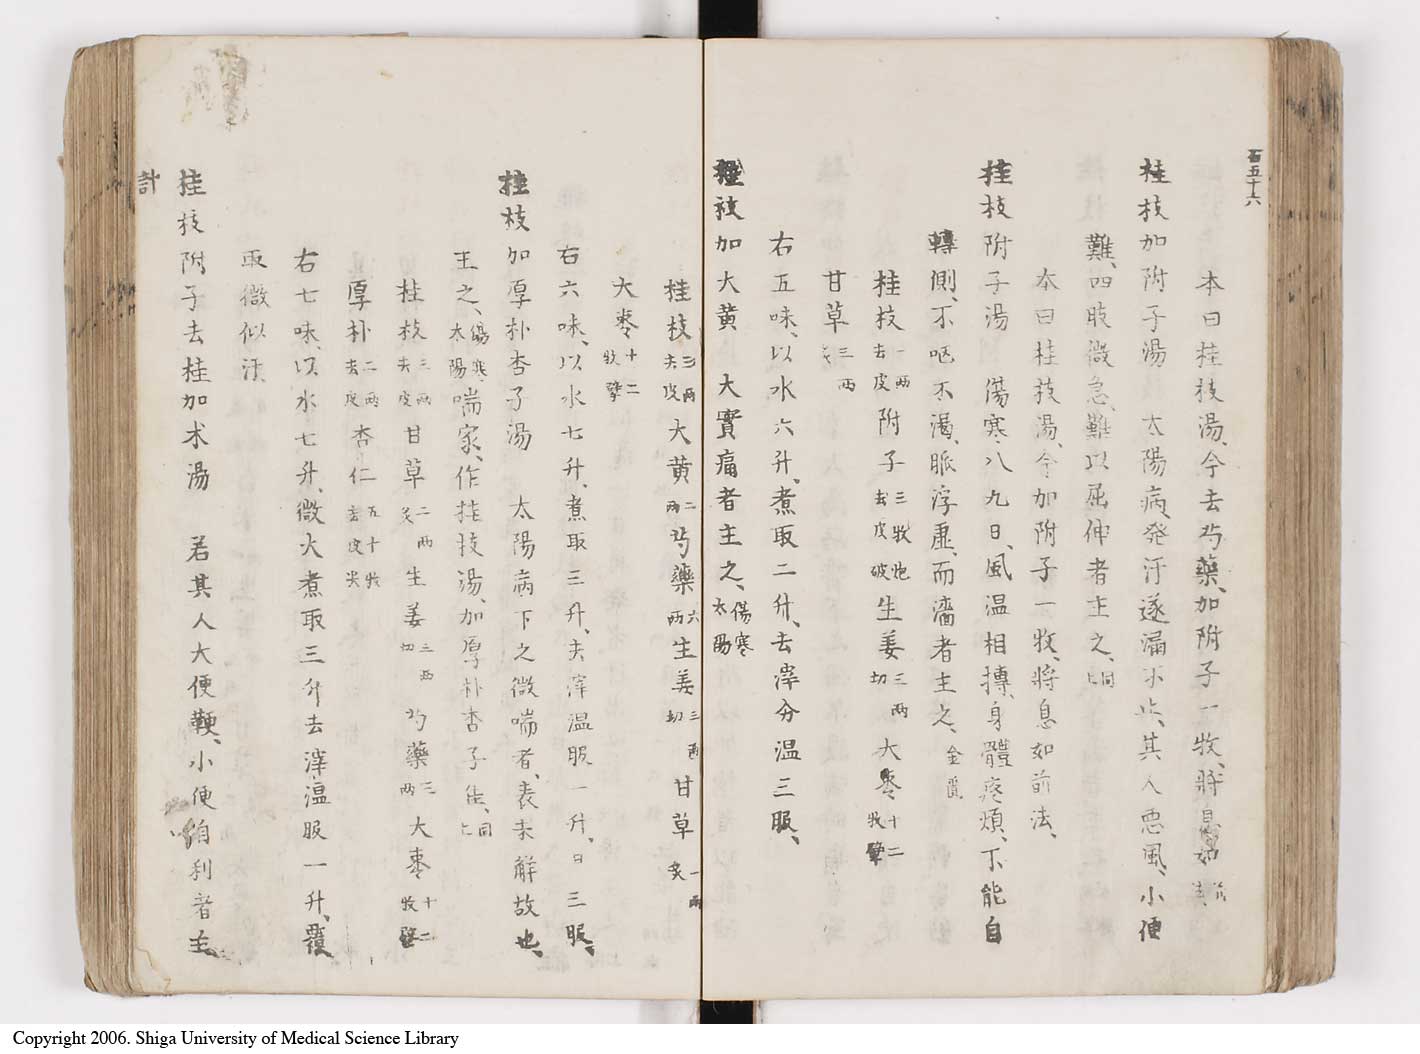 百五十六
本曰桂枝湯、今去芍藥、加附子一枚、將息如前法
桂枝加附子湯　太陽病、発汗遂漏不止、其人悪風、小便
難、四肢微急、難以屈伸者主之、同上
本曰桂枝湯、今加附子一枚、將息如前法、
桂枝附子湯　傷寒八九日、風温相摶、身體疼煩、不能自
轉側、不呕不渴、脈浮虛、而濇者主之、金匱
桂枝一兩去皮附子三枚炮去皮破生姜三兩切大棗十二枚擘
甘草三兩炙
右五味、以水六升、煮取二升、去滓分温三服、
桂枝加大黄　大實痛者主之、傷寒太陽
桂枝三兩去皮大黄二兩芍藥六兩生姜三兩切甘草一兩炙
大棗十二枚擘
右六味、以水七升、煮取三升、去滓温服一升、日三服、
桂枝加厚朴杏子湯　太陽病下之微喘者、表未解故也、
主之、傷寒太陽喘家、作桂枝湯、加厚朴杏子佳、同上
桂枝三兩去皮甘草二兩炙生姜三兩切芍藥三兩大棗十二枚擘
厚朴二兩去皮杏仁五十枚去皮尖
右七味、以水七升、微火煮取三升去滓温服一升、覆
取微似汗
桂枝附子去桂加朮湯　若其人大便鞕、小便自利者主
計